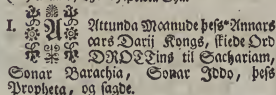 I. Attunda Maanude þess Annars
aars Darij Kongs, skiede Ord
DROTTins til Sachariam,
Sonar Barachia, Sonar Iddo, þess
Propheta, og sagde.